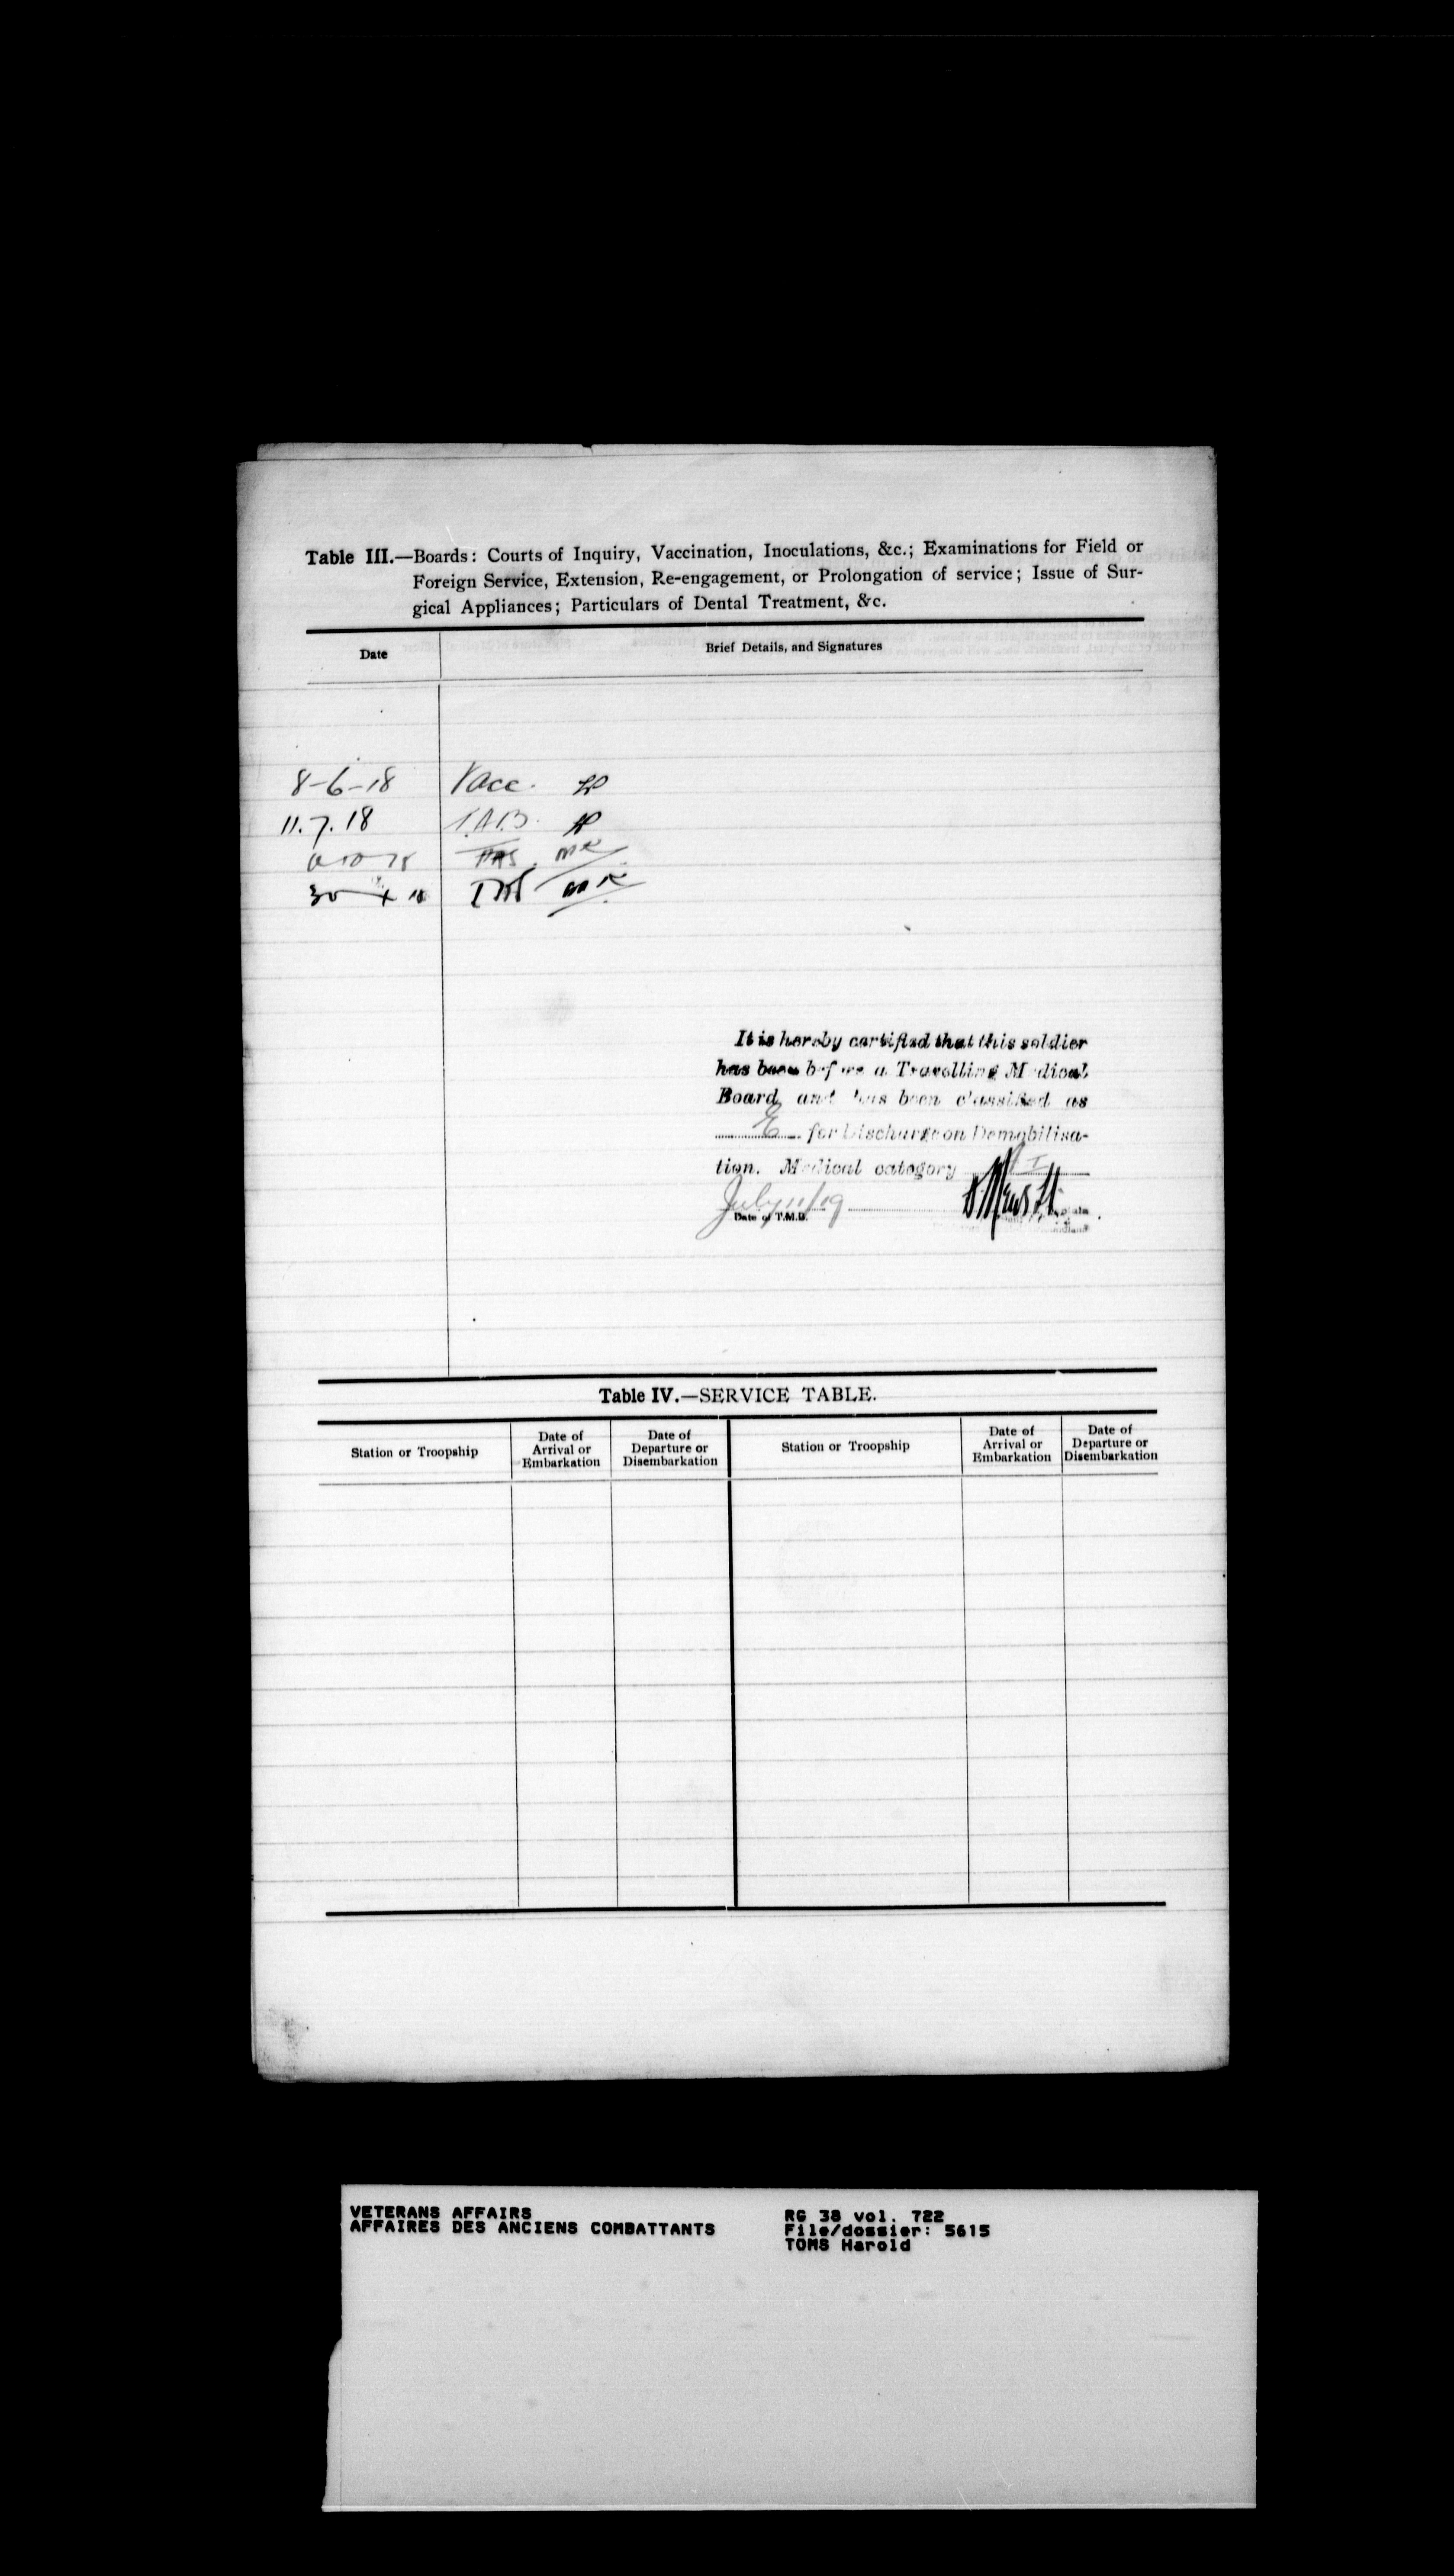 Table III.—Boards: Courts of Inquiry, Vaccination, Inoculations, &c.; Examinations for Field or
Foreign Service, Extension, Re-engagement, or Prolongation of service; Issue of Sur-
gical Appliances; Particulars of Dental Treatment, &c.
Date
Brief Details, and Signatures
8-6-18 Vacc.
11.7.18 T.A.B.
30
It is hereby certified that this soldier
has been before a Travelling Medical
Board and has been classified as
E for Discharge on Demobilisa-
tion. Medical category I
July 11/19
Date of T.M.B.
Table IV.—SERVICE TABLE.
Station or Troopship
Date of
Arrival or
Embarkation
Date of
Departure or
Disembarkation
Station or Troopship
Date of
Arrival or
Embarkation
Date of
Departure or
Disembarkation
VETERANS AFFAIRS
AFFAIRES DES ANCIENS COMBATTANTS
RG 38 vol. 722
File/dossier: 5615
TOMS Harold